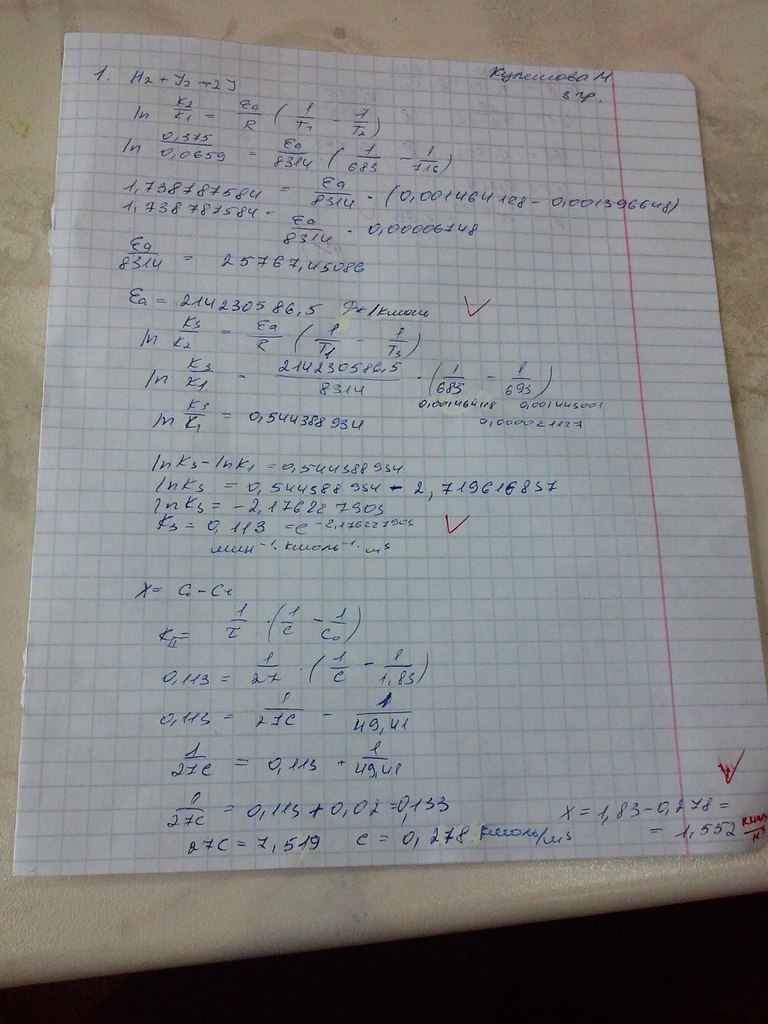 Кулешова М
3 гр.
1. H₂ + J₂ → 2J
ln K₂/K₁ = Ea/R (1/T₁ - 1/T₂)
ln 0,375/0,0659 = Ea/8314 (1/683 - 1/716)
1,738787584 = Ea/8314 · (0,001464128 - 0,001396648)
1,738787584 = Ea/8314 · 0,00006748
Ea/8314 = 25767,45086
Ea = 214230586,5 Дж/кмоль
ln K₃/K₂ = Ea/R (1/T₁ - 1/T₃)
ln K₃/K₁ = 214230586,5/8314 · (1/683 - 1/693)
0,001464128 0,001443001
ln K₃/K₁ = 0,544388934
0,000021127
lnK₃ - lnK₁ = 0,544388934
lnK₃ = 0,544388934 - 2,719616837
lnK₃ = -2,176227903
K₃ = 0,113 = e^-2,176227903
мин⁻¹·кмоль⁻¹·м³
X = C₀ - Cτ
K_II = 1/τ · (1/C - 1/C₀)
0,113 = 1/27 · (1/C - 1/1,83)
0,113 = 1/27C - 1/49,41
1/27C = 0,113 + 1/49,41
1/27C = 0,113 + 0,02 = 0,133
27C = 7,519 C = 0,278 кмоль/м³
X = 1,83 - 0,278 =
= 1,552 кмоль/м³